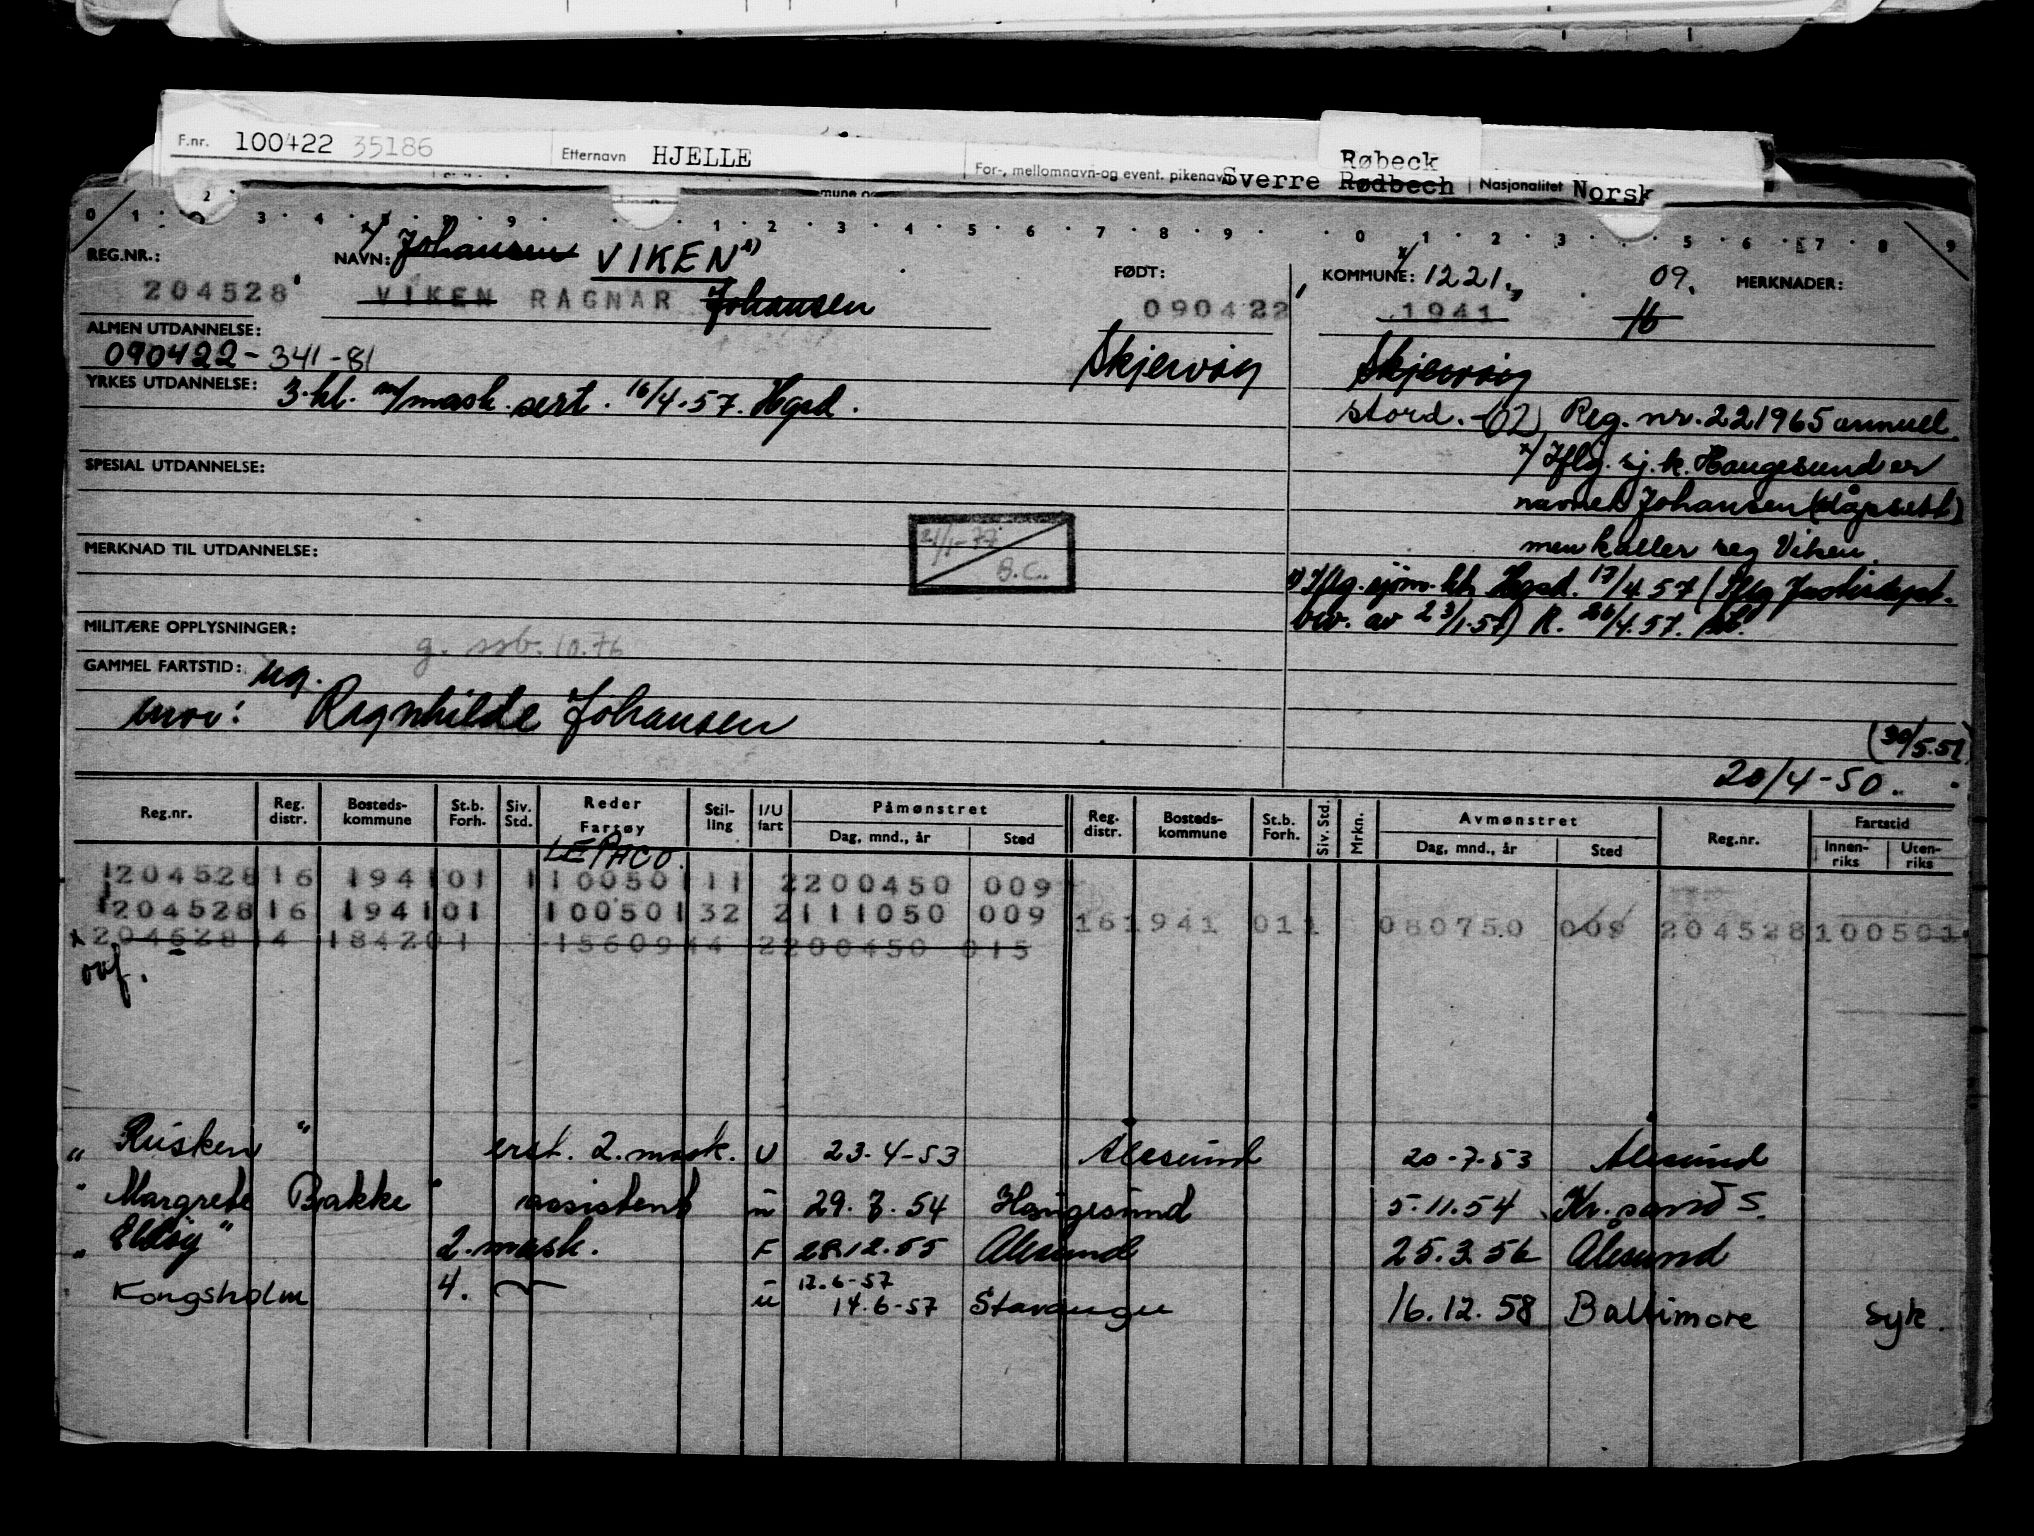 F.nr. 100422 35186 Etternavn HJELLE For-, mellomnavn-og event. pikenavn Sverre Rødbech Røbeck Nasjonalitet Norsk
REG.NR.: NAVN: Johansen VIKEN FØDT: KOMMUNE: 1221 09. MERKNADER:
204528 VIKEN RAGNAR Johansen 090422 1941 16
ALMEN UTDANNELSE:
090422-341-81 Skjervøy Skjervøy
YRKES UTDANNELSE: 3.kl. m/mask. sert. 16/4.57. Hgsd.
Stord.-(02) Reg. nr. 221965 annull.
SPESIAL UTDANNELSE: x/ Iflg. sj.k. Haugesund er
navnet Johansen (dåpsatt)
21/1-77 B.C.
MERKNAD TIL UTDANNELSE: men kaller seg Viken.
Iflg. sjøm.kt. Hgsd. 17/4.57 (Iflg Justisdept.
MILITÆRE OPPLYSNINGER: bev. av 23/1.57) R. 26/4.57.
g. ssb. 10.76
GAMMEL FARTSTID: ug.
mor: Ragnhilde Johansen
(30/5.51)
20/4-50.
Reg.nr. Reg. distr. Bosteds-kommune St.b. Forh. Siv. Std. Reder Fartøy Stil-ling I/U fart Påmønstret Dag, mnd., år Sted Reg. distr. Bosteds-kommune St.b. Forh. Siv. Std. Mrkn. Avmønstret Dag, mnd., år Sted Reg.nr. Fartstid Innen-riks Uten-riks
LE PACO.
1204528 16 1941 01 1 100501 11 2200450 009
1204528 16 1941 01 100501 32 2111050 009 16 1941 01 1 080750 009 204528 100501
204528 4 1842 01 15609 44 2200450 015
ovf.
" Risken " erst. 2. mask. U 23.4-53 Ålesund 20-7-53 Ålesund
" Margrete Bakke " assistent u 29.7.54 Haugesund 5.11.54 Kr.sand S.
" Eldøy " 2. mask. F 28.12.55 Ålesund 25.3.56 Ålesund
Kongsholm 4. u 12.6-57 14.6-57 Stavanger 16.12.58 Baltimore syk.